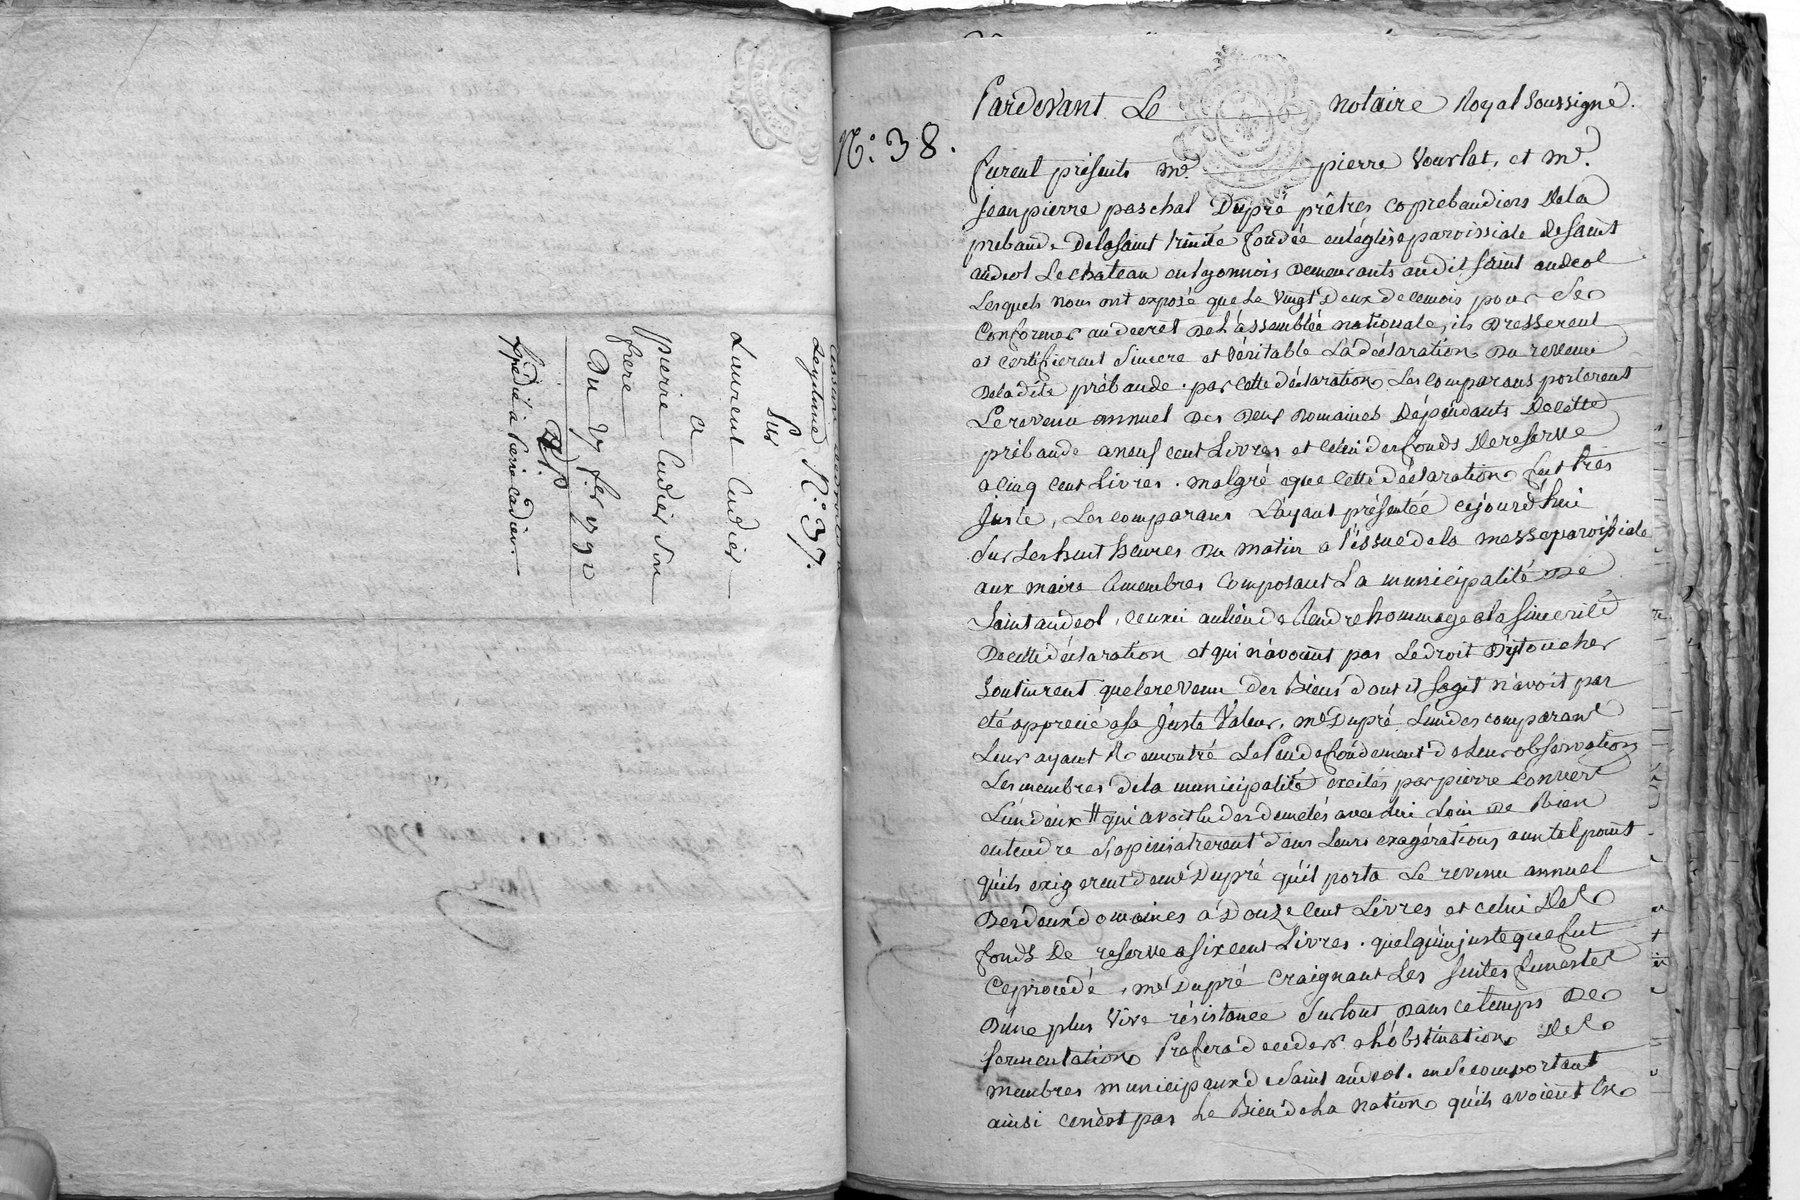 Laurent Cudier
a
pierre Cudier Son
frere
N.º 37.
Sur
N.º 38.
Pardevant Le notaire Royal Soussigné.
furent présents mr. pierre Vourlat, et mr.
jean pierre paschal Dupré prêtres coprebandiers De la
prebande de la Saint trinité fondée en léglise paroissiale de saint
andeol Le chateau en lyonnois Demeurants audit saint andeol
Lesquels nous ont exposé que Le vingt Deux de ce mois pour Se
Conformer au decret De L'assemblée nationale, ils Dresserent
et certifierent Sincere et Véritable La déclaration Du revenu
De la dite prébande. par cette déclaration Les comparans porterent
Le revenu annuel Des Deux Domaines Dépendants De cette
prébande a neuf cent Livres et celui des fonds De reserve
a cinq cent Livres. malgré que cette déclaration fut tres
Juste, Les comparans L'ayant présentée cejourd'hui
Sur Les huit heures Du matin a l'issue de la messe paroissiale
aux maire & membres Composant La municipalité De
Saint andeol, ceux ci au lieu de Rendre hommage a la sincerité
De cette déclaration et qui n'avoient pas Le droit D'y toucher
Soutinrent que le revenu des Biens dont il sagit n'avoit pas
été apprecié a sa Juste Valeur, mr Dupré L'un des comparant
Leur ayant Remontré Le Peu de fondement de Leur observation
Les membres de la municipalité excités par pierre Convert
L'un d'eux # qui avoit eu des demelés avec Lui Loin De Rien
entendre s'opiniâtrerent dans Leurs exagérations a un tel point
qu'ils exigerent de mr Dupré qu'il porta Le revenu annuel
Des deux domaines à Douze Cent Livres et celui Des
fonds De reserve a six cent Livres. quelqu'injuste que fut
Ce procédé, mr Dupré craignant Les suites funestes
D'une plus Vive résistance Surtout Dans ce temps De
fermentation Préfera de ceder a L'obstination Des
membres municipaux de Saint andeol. en se comportant
ainsi ce n'est pas Le Bien de La nation qu'ils avoient En